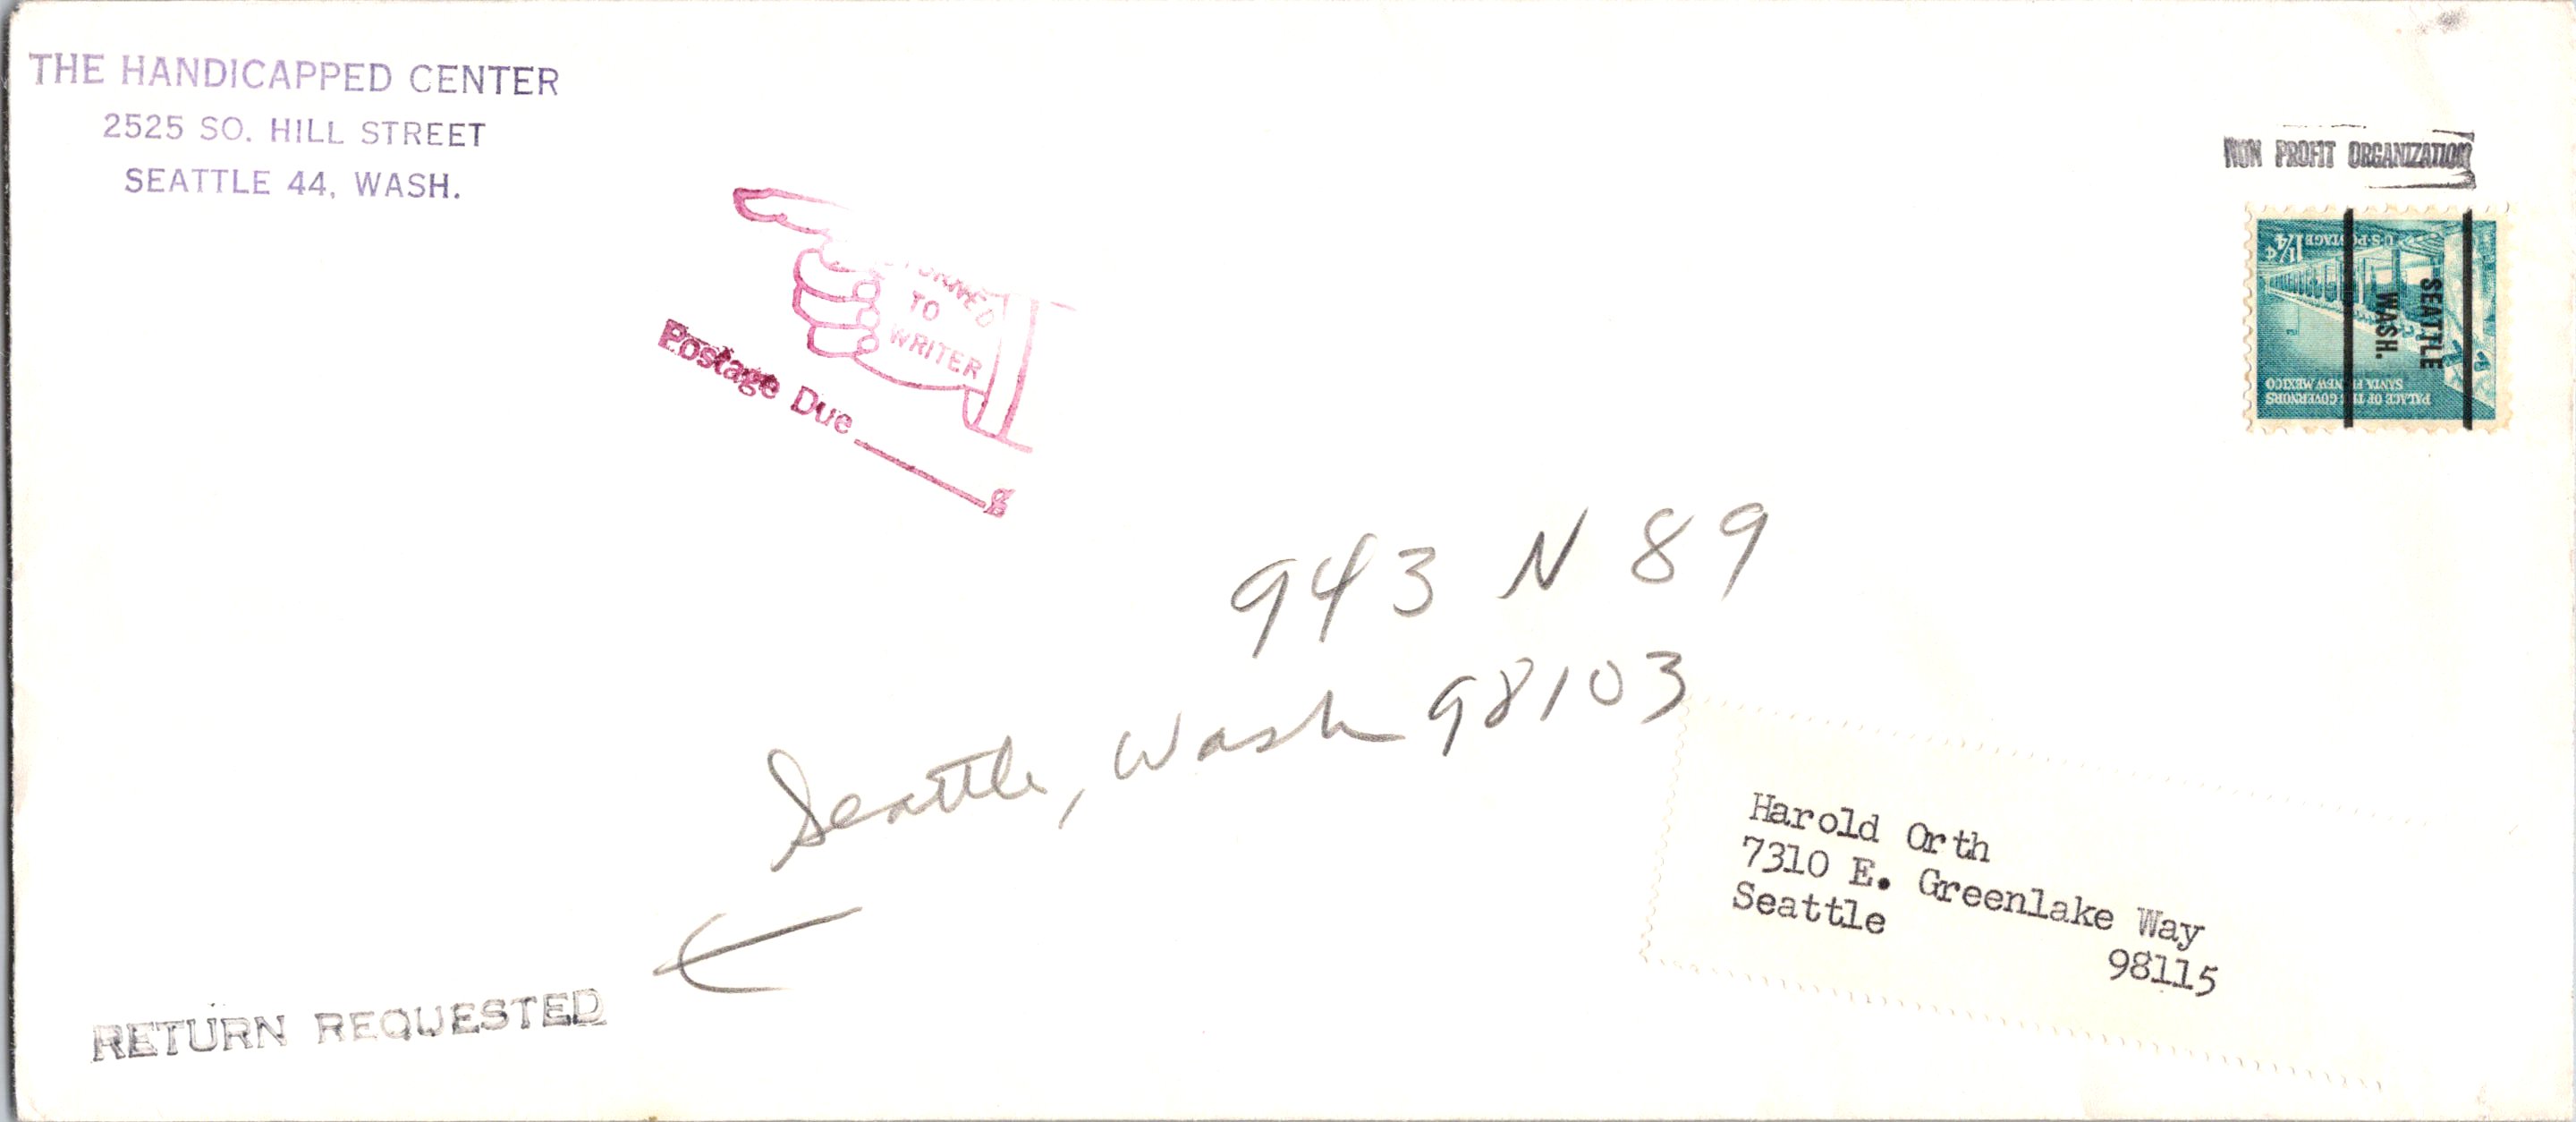 THE HANDICAPPED CENTER
2525 SO. HILL STREET
SEATTLE 44, WASH.
NON PROFIT ORGANIZATION
1¼¢ U·S·POSTAGE
PALACE OF THE GOVERNORS
SANTA FE, NEW MEXICO
SEATTLE
WASH.
TO
WRITER
Postage Due ¢
943 N 89
Seattle, Wash 98103
Harold Orth
7310 E. Greenlake Way
Seattle
98115
RETURN REQUESTED